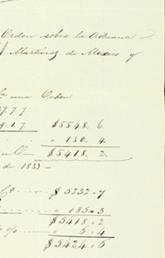 Orden sobre la Aduana
Martinez de Mexico y
una Orden
7 7 7
9 1 7 $5548. 6.
" 130. 4.
$5418. 2.
de 1833 -
$ 5232 - 7
" 185 - 3
$5418 - 2
" 5 - 4
$5424. 5